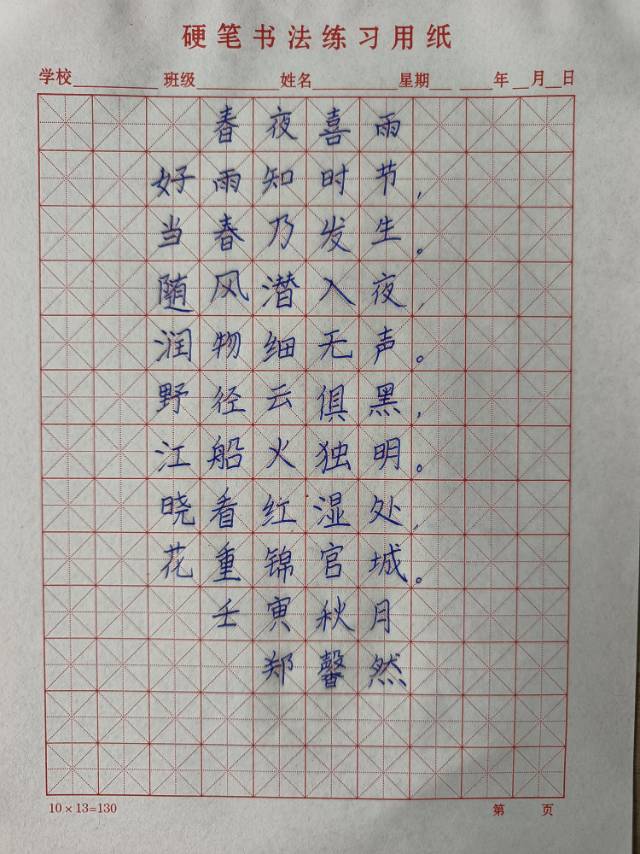 硬笔书法练习用纸
学校 班级 姓名 星期 年 月 日
春夜喜雨
好雨知时节，
当春乃发生。
随风潜入夜，
润物细无声。
野径云俱黑，
江船火独明。
晓看红湿处，
花重锦官城。
壬寅秋月
郑馨然
10×13=130 第 页